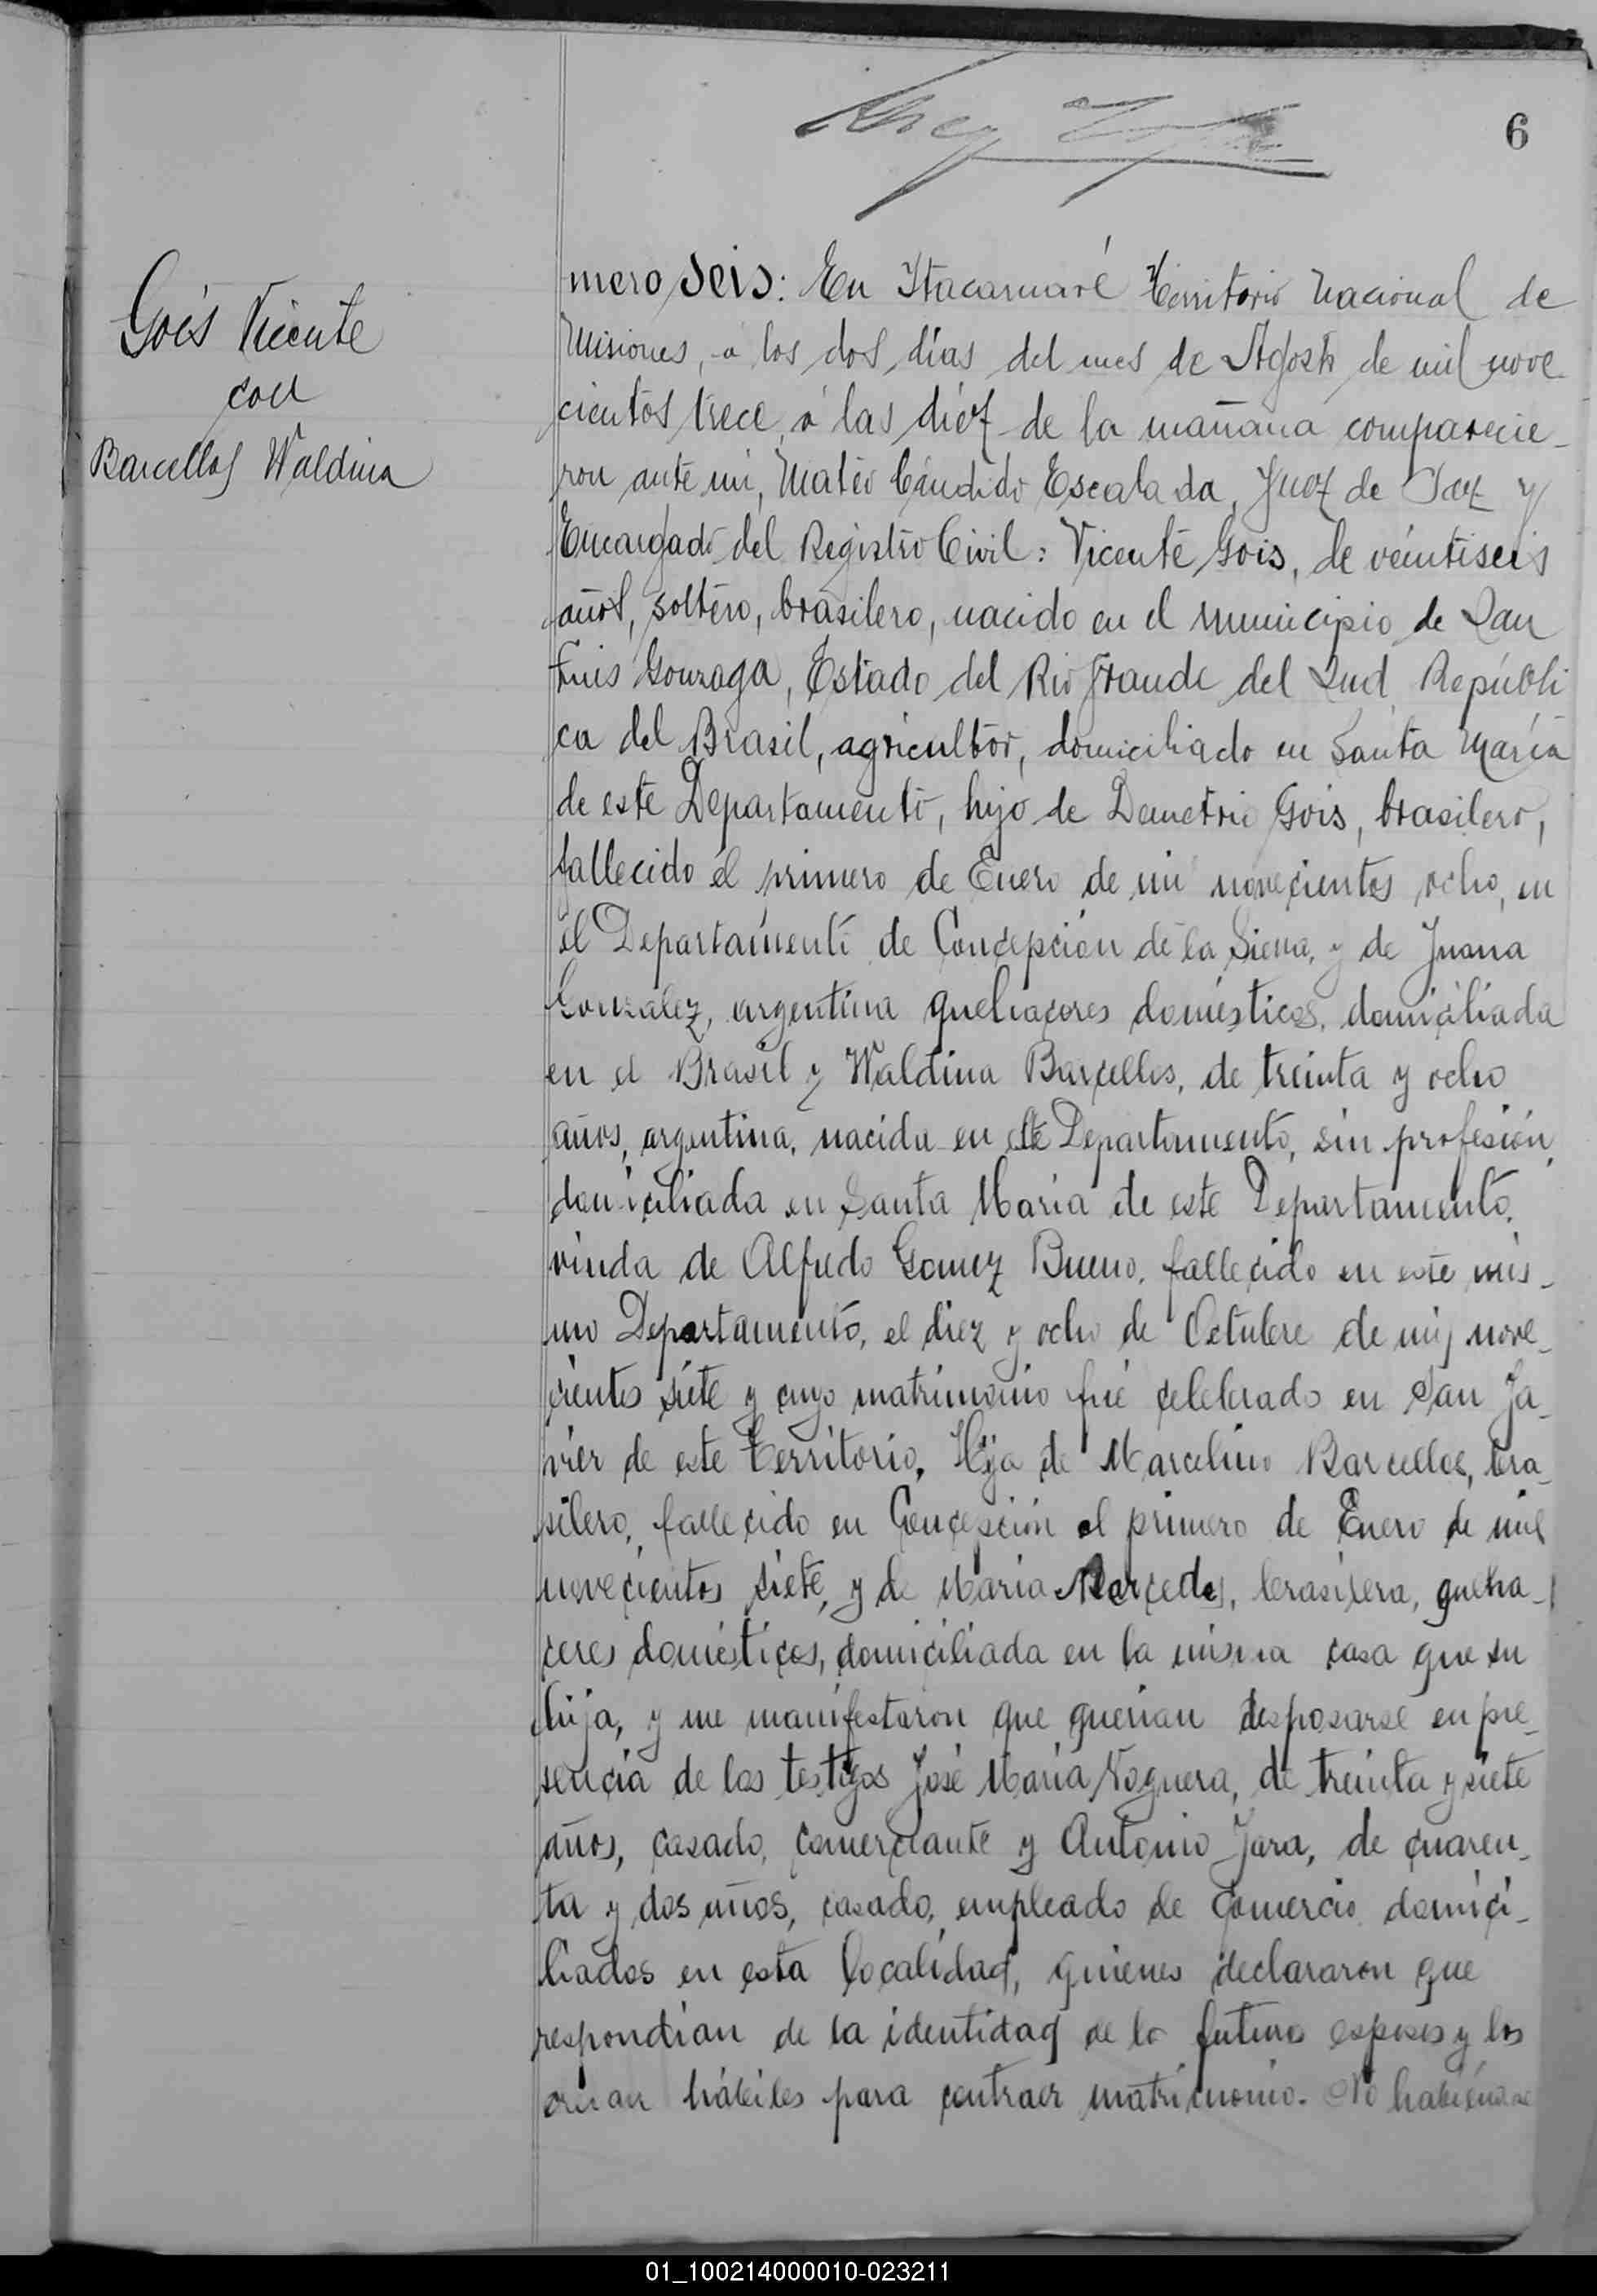 6
Gois Vicente
con
Barcellos Waldina
mero seis: En Itacaruaré Territorio Nacional de
Misiones, a los dos días del mes de Agosto de mil nove
cientos trece, á las diéz de la mañana comparecie-
ron ante mi, Matéo Cándido Escalada, Juez de Paz y
Encargado del Registro Civil: Vicente Gois, de veintiseis
años, soltero, brasilero, nacido en el Municipio de San
Luis Gonzaga, Estado del Rio Grande del Sud, Repúbli
ca del Brasil, agricultor, domiciliado en Santa María
de este Departamento, hijo de Demetrio Gois, brasilero,
fallecido el primero de Enero de mil novecientos ocho, en
el Departamento de Concepción de la Sierra, y de Juana
Gonzalez, argentina quehaceres domésticos, domiciliada
en el Brasil y Waldina Barcellos, de treinta y ocho
años, argentina, nacida en este Departamento, sin profesión,
domiciliada en Santa Maria de este Departamento,
viuda de Alfredo Gomez Bueno, fallecido en este mis-
mo Departamento, el diez y ocho de Octubre de mil nove-
cientos siete y cuyo matrimonio fué celebrado en San Ja-
vier de este Territorio, Hija de Marcelino Barcellos, bra-
silero, fallecido en Concepción el primero de Enero de mil
novecientos siete, y de María Mercedes, brasilera, queha-
ceres domésticos, domiciliada en la misma casa que su
hija, y me manifestaron que querian desposarse en pre-
sencia de los testigos José María Noguera, de treinta y siete
años, casado, comerciante y Antonio Jara, de cuaren-
ta y dos años, casado, empleado de Comercio, domici-
liados en esta localidad, quienes declararon que
respondian de la identidad de lo futuros esposos y los
creian hábiles para contraer matrimonio. No habiéndose
01_100214000010-023211